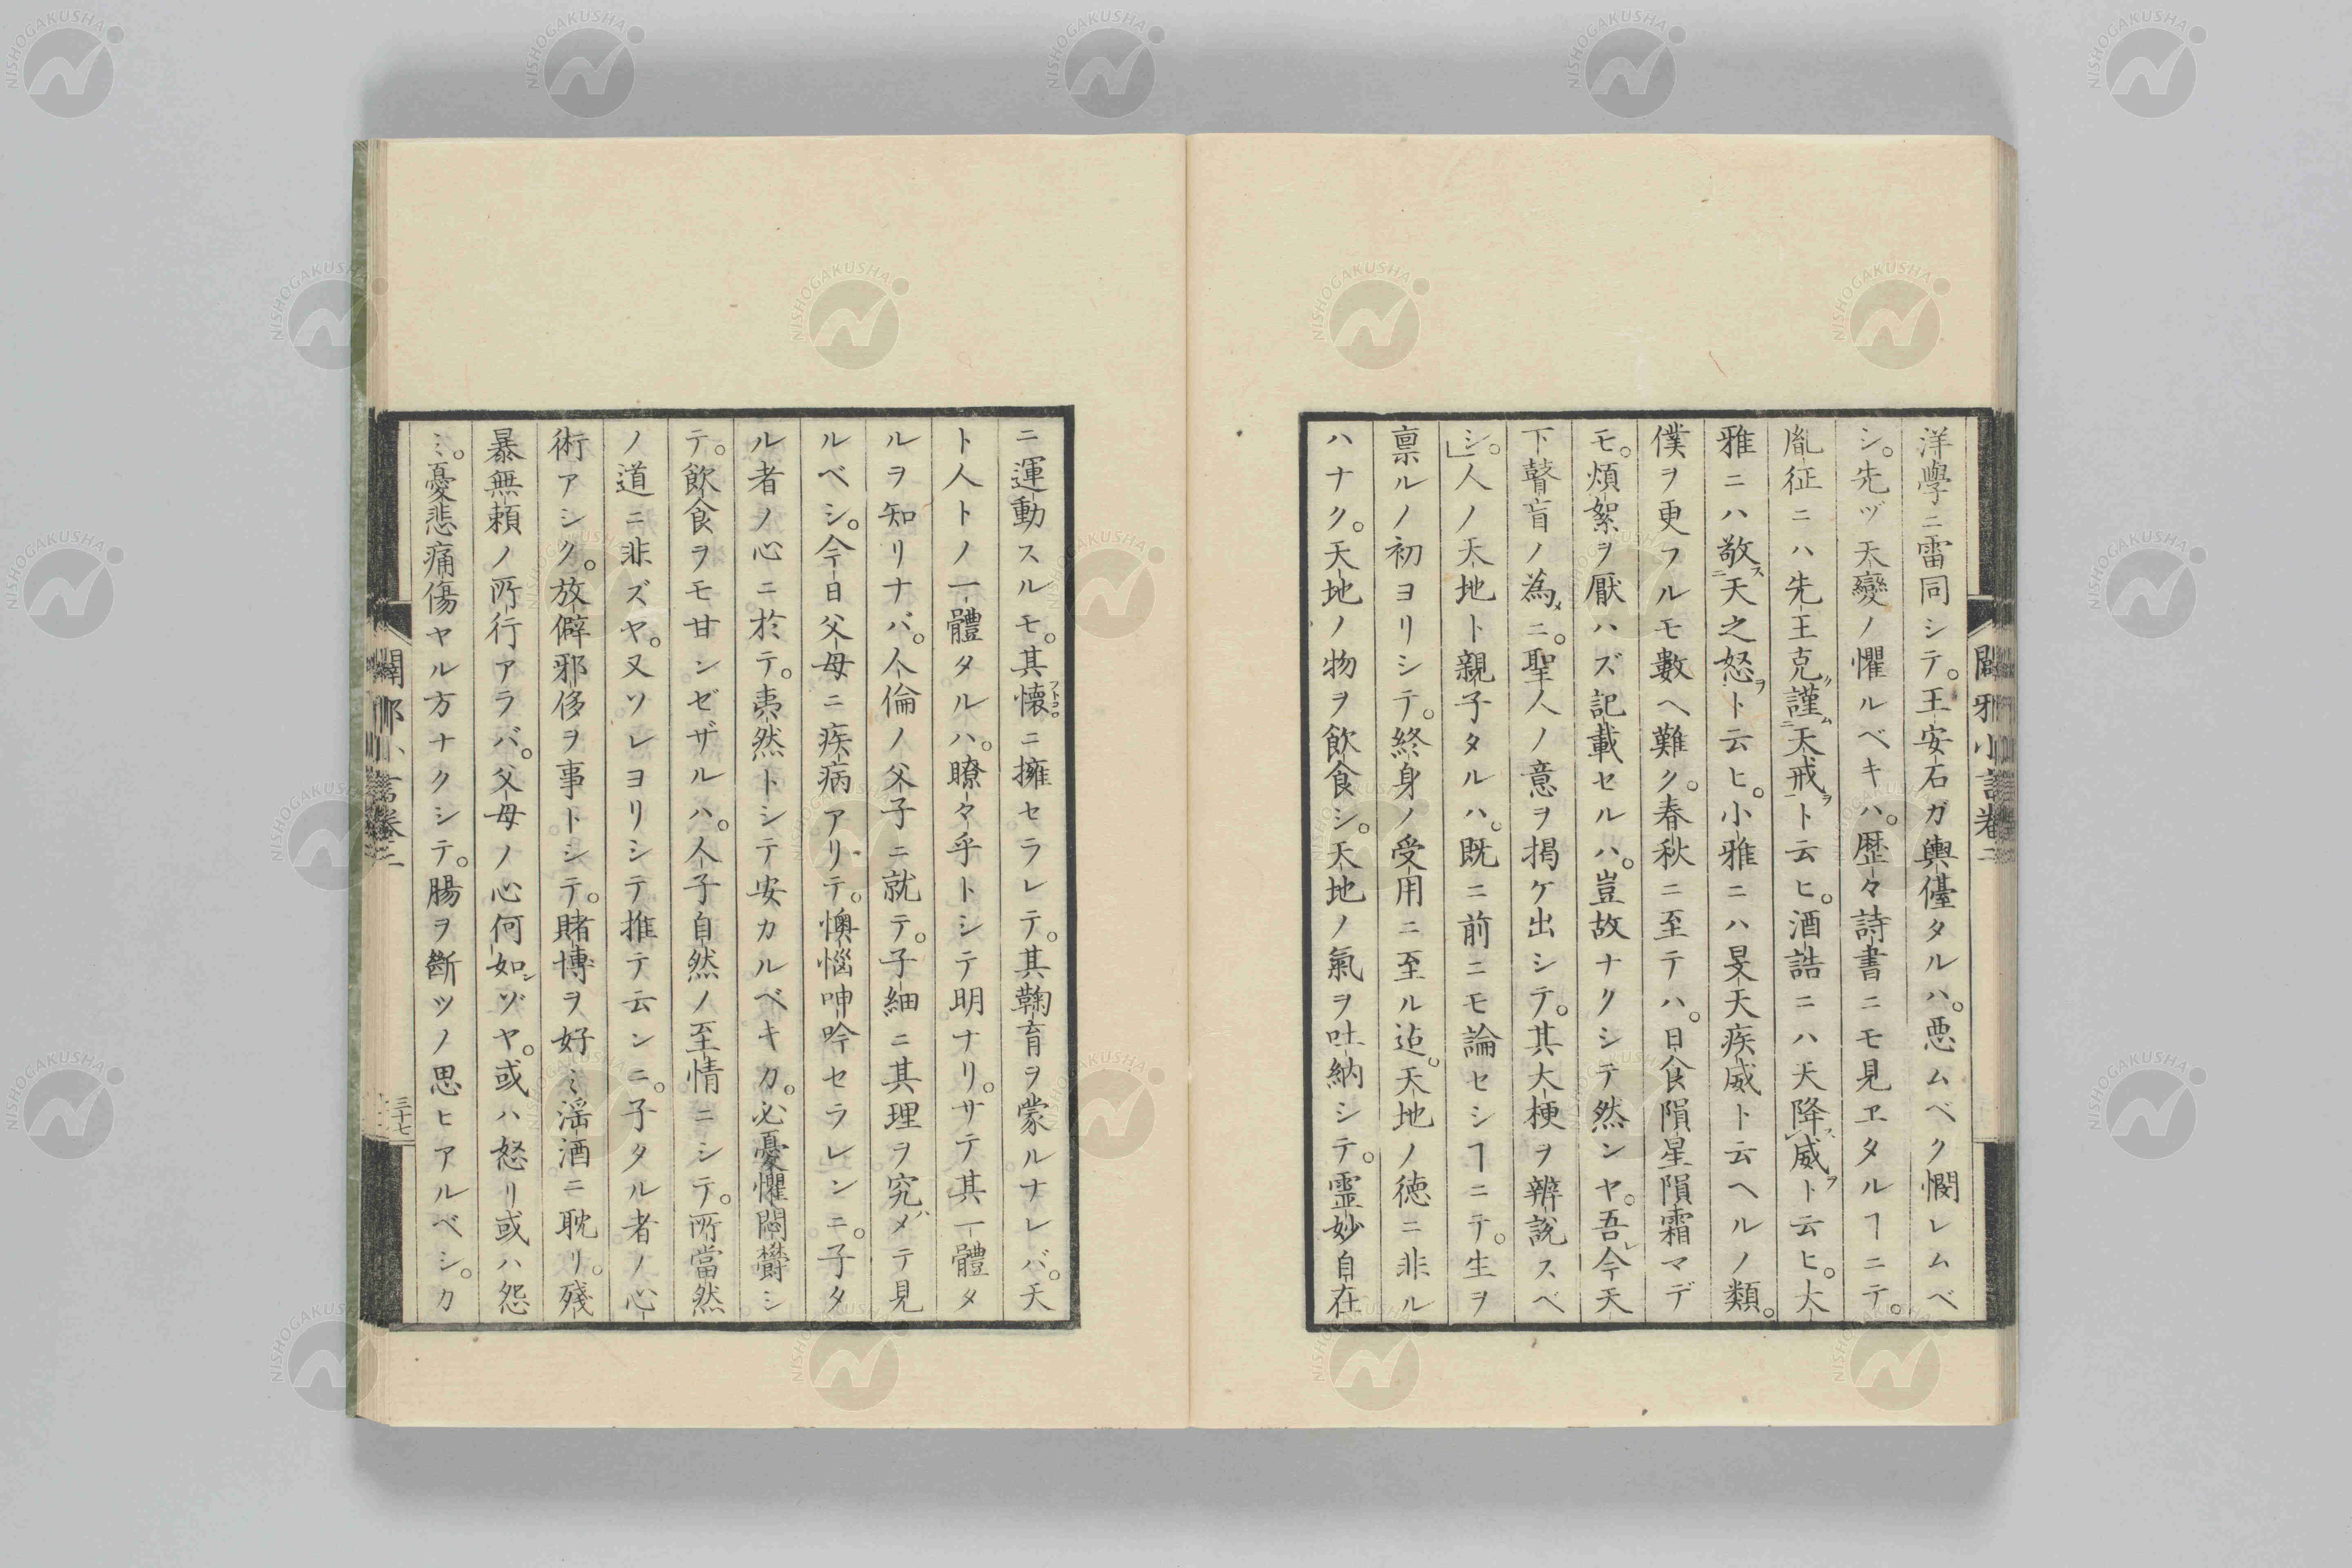 洋學ニ雷同シテ。王安石ガ輿儓タルハ。悪ムベク憫レムベ
シ。先ヅ天變ノ懼ルベキハ。歴々詩書ニモ見ヱタルヿニテ。
胤征ニハ先王克謹天戒ト云ヒ。酒誥ニハ天降威ト云ヒ。大
雅ニハ敬天之怒ト云ヒ。小雅ニハ旻天疾威ト云ヘルノ類。
僕ヲ更フルモ數ヘ難ク。春秋ニ至テハ。日食隕星隕霜マデ
モ。煩絮ヲ厭ハズ記載セルハ。豈故ナクシテ然ンヤ。吾今天
下瞽盲ノ為ニ。聖人ノ意ヲ掲ケ出シテ。其大梗ヲ辨説スベ
シ。」人ノ天地ト親子タルハ。既ニ前ニモ論セシヿニテ。生ヲ
禀ルノ初ヨリシテ。終身ノ受用ニ至ル迠。天地ノ徳ニ非ル
ハナク。天地ノ物ヲ飲食シ。天地ノ氣ヲ吐納シテ。霊妙自在
ニ運動スルモ。其懐ニ擁セラレテ。其鞠育ヲ蒙ルナレバ。天
ト人トノ一體タルハ。瞭々乎トシテ明ナリ。サテ其一體タ
ルヲ知リナバ。人倫ノ父子ニ就テ。子細ニ其理ヲ究メテ見
ルベシ。今日父母ニ疾病アリテ。懊惱呻吟セラレンニ。子タ
ル者ノ心ニ於テ。夷然トシテ安カルベキカ。必憂懼悶欝シ
テ。飲食ヲモ甘ンゼザルハ。人子自然ノ至情ニシテ。所當然
ノ道ニ非ズヤ。又ソレヨリシテ推テ云ンニ。子タル者ノ心
術アシク。放僻邪侈ヲ事トシテ。賭博ヲ好ミ滛酒ニ耽リ。殘
暴無頼ノ所行アラバ。父母ノ心何如ゾヤ。或ハ怒リ或ハ怨
ミ。憂悲痛傷ヤル方ナクシテ。腸ヲ斷ツノ思ヒアルベシ。カ
闢邪小言卷二
三十七
NISHOGAKUSHA